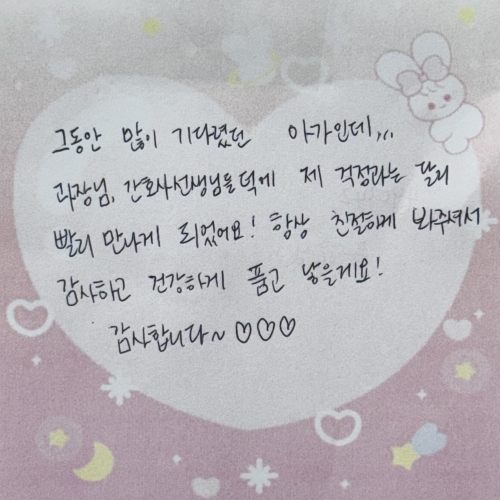 그동안 많이 기다렸던 아가인데,,,
과장님, 간호사선생님들덕에 제 걱정과는 달리
빨리 만나게 되었어요! 항상 친절하게 봐주셔서
감사하고 건강하게 품고 낳을게요!
감사합니다~ ♡♡♡